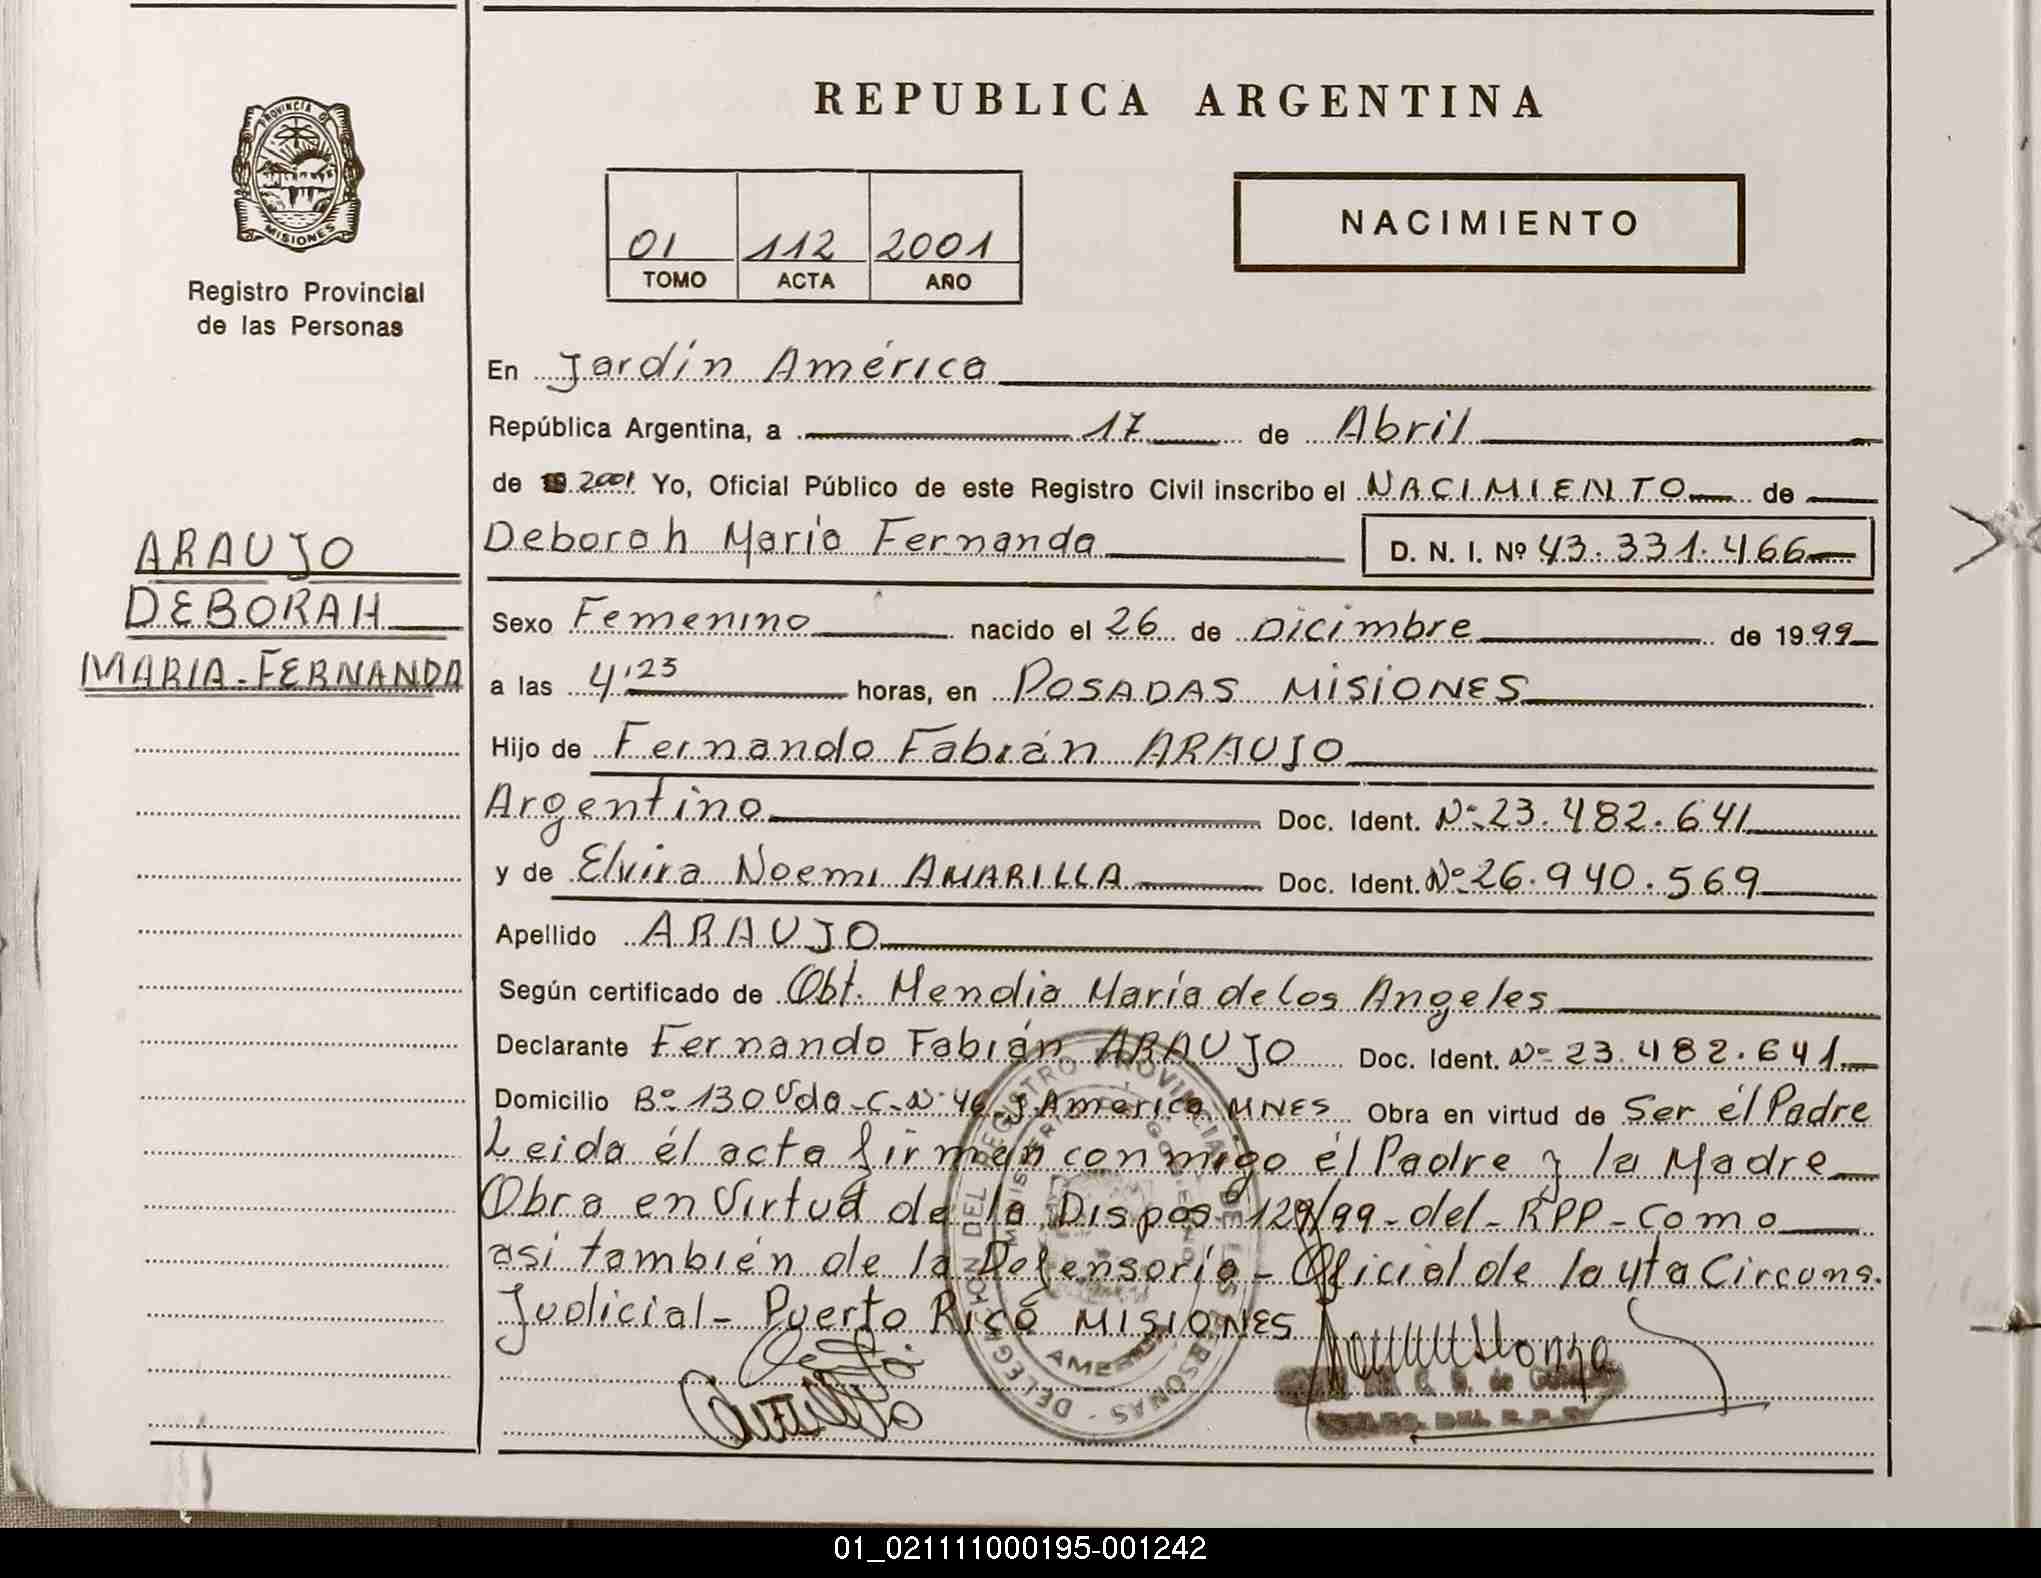 REPUBLICA ARGENTINA
PROVINCIA DE
MISIONES
Registro Provincial
de las Personas
01 112 2001
TOMO ACTA AÑO
NACIMIENTO
En Jardín América
República Argentina, a 17 de Abril
de 2001 Yo, Oficial Público de este Registro Civil inscribo el NACIMIENTO de
Deborah María Fernanda D. N. I. Nº 43.331.466
ARAUJO
DEBORAH
MARIA-FERNANDA
Sexo Femenino nacido el 26 de Diciembre de 1999
a las 4'23 horas, en POSADAS MISIONES
Hijo de Fernando Fabián ARAUJO
Argentino Doc. Ident. Nº 23.482.641
y de Elvira Noemi AMARILLA Doc. Ident. Nº 26.940.569
Apellido ARAUJO
Según certificado de Obt. Mendia María de los Angeles
Declarante Fernando Fabián ARAUJO Doc. Ident. Nº 23.482.641
Domicilio Bº 130 Vda-C-Nº 46 J. América MNES Obra en virtud de Ser él Padre
Leida él acta firman conmigo él Padre y la Madre
Obra en Virtud de la Dispos 129/99-del-RPP-Como
asi también de la Defensoría-Oficial de la 4ta Circuns.
Judicial-Puerto Rico MISIONES
DELEGACION DEL REGISTRO PROVINCIAL DE LAS PERSONAS
01_021111000195-001242